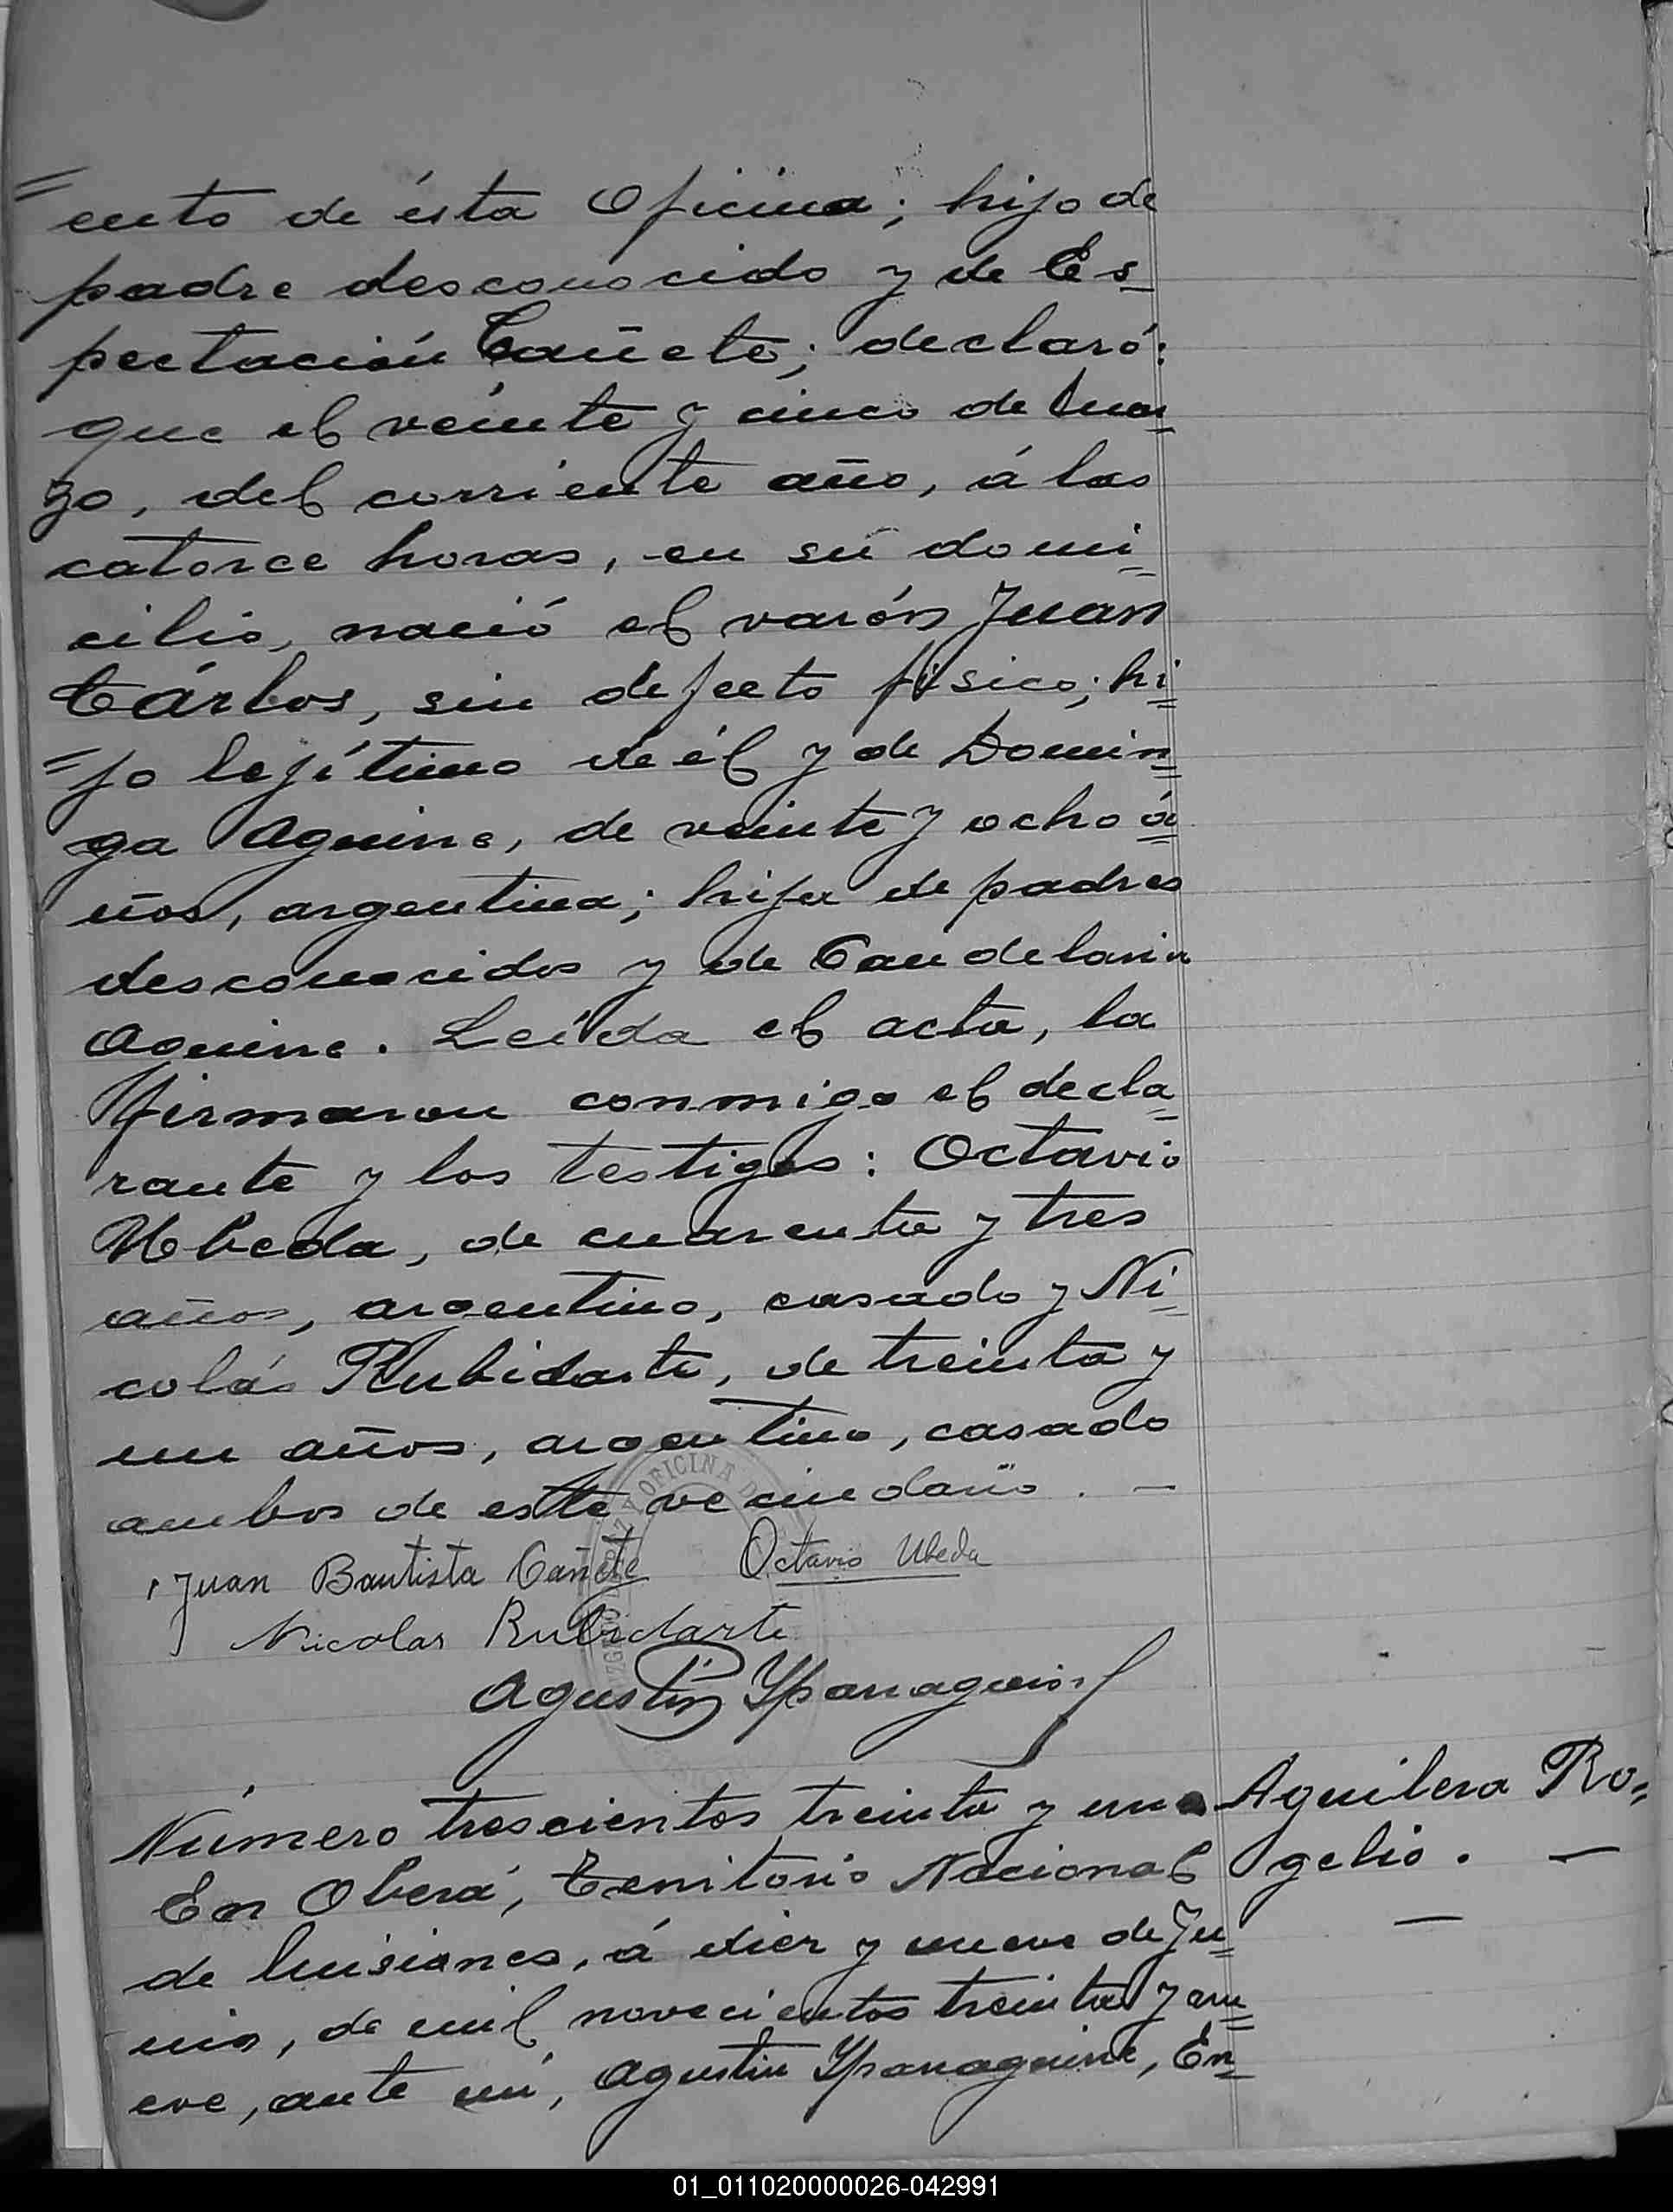 =ento de ésta Oficina; hijo de
padre desconocido y de Es_
pectación Cañete; declaró:
que el veinte y cinco de Mar=
zo, del corriente año, á las
catorce horas, en su domi=
cilio, nació el varón Juan
Cárlos, sin defecto físico; hi=
=jo lejítimo de él y de Domin=
ga Aguirre, de veinte y ocho á=
ños, argentina; hija de padres
desconocidos y de Candelaria
Aguirre. Leída el acta, la
firmaron conmigo el decla=
rante y los testigos: Octavio
Ubeda, de cuarenta y tres
años, argentino, casado y Ni=
colás Rubidarte, de treinta y
un años, argentino, casado
ambos de este vecindario. —
Juan Bautista Cañete Octavio Ubeda
Nicolas Rubidarte
Agustín Yparraguirre
Número trescientos treinta y uno Aguilera Ro=
En Oberá, Territorio Nacional gelio. —
de Misiones, á diez y nueve de Ju= —
nio, de mil novecientos treinta y nu=
eve, ante mí, Agustin Yparraguirre, En=
OFICINA D
01_011020000026-042991